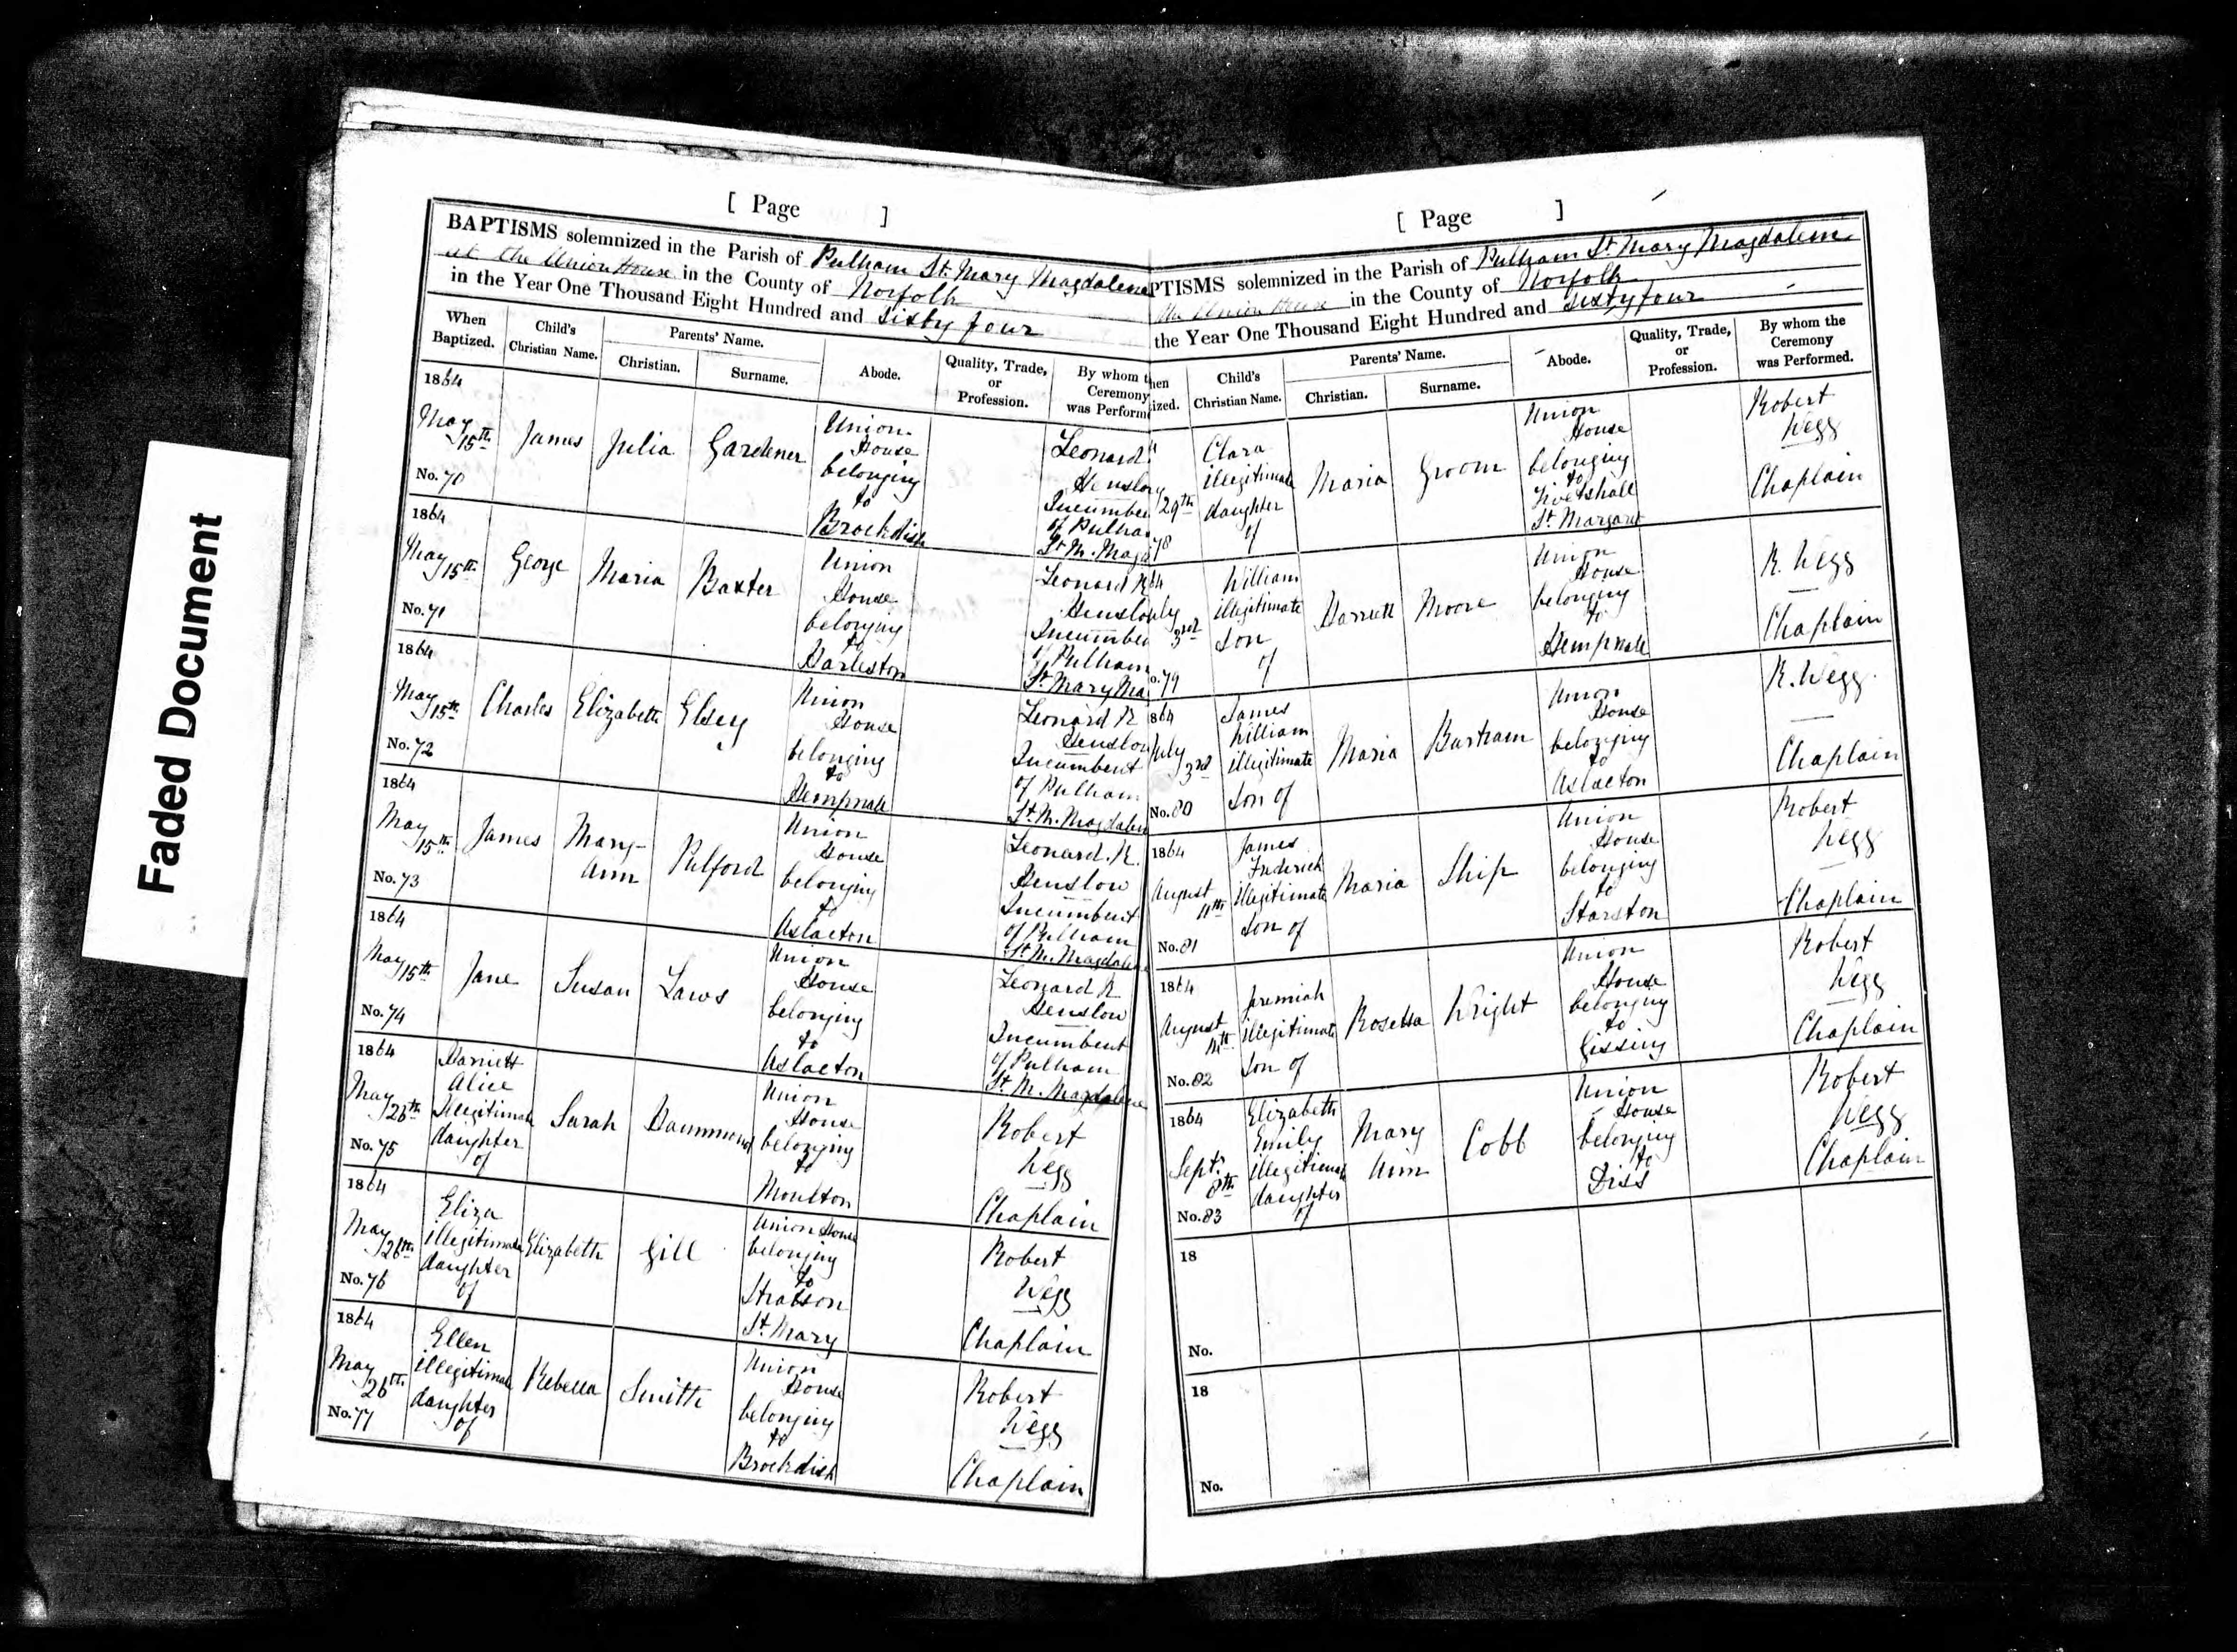 Faded Document
[ Page ]
BAPTISMS solemnized in the Parish of Pulham St. Mary Magdalene
at the Union House in the County of Norfolk
in the Year One Thousand Eight Hundred and sixty four
When Baptized.
Child's Christian Name.
Parents' Name.
Christian.
Surname.
Abode.
Quality, Trade, or Profession.
By whom t
Ceremony
was Perform
1864
May 15th
No. 70
James
Julia
Gardener
Union
House
belonging
to
Brockdish
Leonard
Henslow
Incumben
of Pulha
St. M. Magd
1864
May 15th
No. 71
George
Maria
Baxter
Union
House
belonging
to
Harleston
Leonard R
Henslo
Incumben
of Pulham
St. Mary Ma
1864
May 15th
No. 72
Charles
Elizabeth
Elsey
Union
House
belonging
to
Hempnall
Leonard R
Henslow
Incumbent
of Pulham
St. M. Magdalen
1864
May 15th
No. 73
James
Mary-
Ann
Pulford
Union
House
belonging
to
Aslacton
Leonard. R.
Henslow
Incumbent
of Pulham
St. M. Magdalene
1864
May 15th
No. 74
Jane
Susan
Laws
Union
House
belonging
to
Aslacton
Leonard R
Henslow
Incumbent
of Pulham
St. M. Magdalene
1864
May 26th
No. 75
Harriett
Alice
Illegitimate
daughter
of
Sarah
Union
House
belonging
to
Moulton
Robert
Wegg
Chaplain
1864
May 26th
No. 76
Eliza
illegitimate
daughter
of
Elizabeth
Gill
Union House
belonging
to
Stratton
St. Mary
Robert
Wegg
Chaplain
1864
May
26th
No. 77
Ellen
illegitimate
daughter
of
Rebecca
Smith
Union
House
belonging
to
Brockdish
Robert
Wegg
Chaplain
[ Page ]
PTISMS solemnized in the Parish of Pulham St. Mary Magdalene
the Union House in the County of Norfolk
the Year One Thousand Eight Hundred and sixty four
hen
ized.
Child's
Christian Name.
Parents' Name.
Christian.
Surname.
Abode.
Quality, Trade,
or
Profession.
By whom the
Ceremony
was Performed.
29th
78
Clara
illegitimate
daughter
of
Maria
Groom
Union
House
belonging
to
Tivetshall
St. Margaret
Robert
Wegg
Chaplain
64
ly
3rd
o. 79
William
illegitimate
son
of
Harriett
Moore
Union
House
belonging
to
Hempnall
R. Wegg
Chaplain
864
July
3rd
No. 80
James
William
illegitimate
son of
Maria
Burham
Union
House
belonging
to
Aslacton
R. Wegg.
Chaplain
1864
August
11th
No. 81
James
Frederick
illegitimate
son of
Maria
Ship
Union
House
belonging
to
Starston
Robert
Wegg
Chaplain
1864
August
No. 82
Jeremiah
illegitimate
son of
Rosetta
Wright
Union
House
belonging
to
Gissing
Robert
Wegg
Chaplain
1864
Septr.
8th
No. 83
Elizabeth
Emily
illegitimate
daughter
of
Mary
Ann
Cobb
Union
House
belonging
to
Diss
Robert
Wegg
Chaplain
18
No.
18
No.